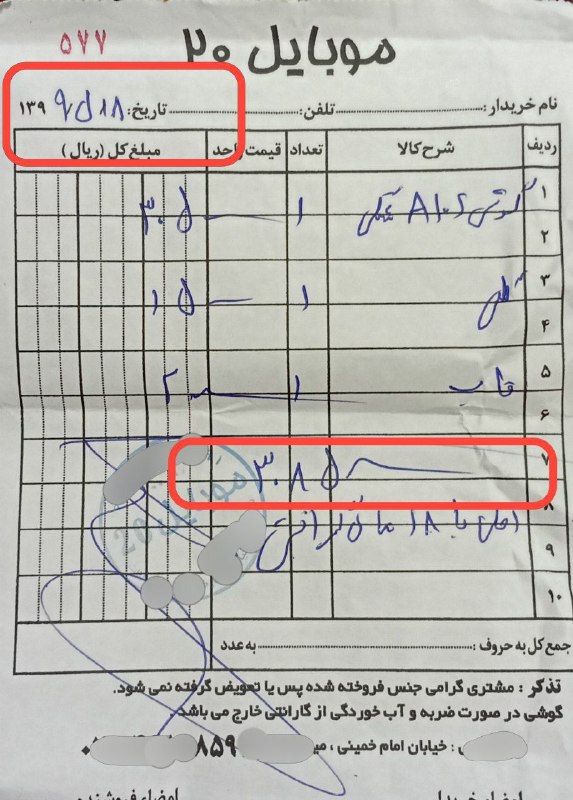 موبایل ۲۰
۵۷۷
نام خریدار: تلفن: تاریخ: ۱۸ ۵ ۹ ۱۳۹
ردیف شرح کالا تعداد قیمت واحد مبلغ کل (ریال)
۱ گوشی A10S مشکی ۱ ۳۰۵
۲
۳ گلس ۱ ۱۵
۴
۵ قاب ۱ ۲۰
۶
۷ ۳۰۸۵
۸ اصل با ۱۸ ماه گارانتی
۹
۱۰
جمع کل به حروف: به عدد
تذکر: مشتری گرامی جنس فروخته شده پس یا تعویض گرفته نمی شود.
گوشی در صورت ضربه و آب خوردگی از گارانتی خارج می باشد.
: خیابان امام خمینی ، ۸۵۹ ۰
امضاء خریدار امضاء فروشنده